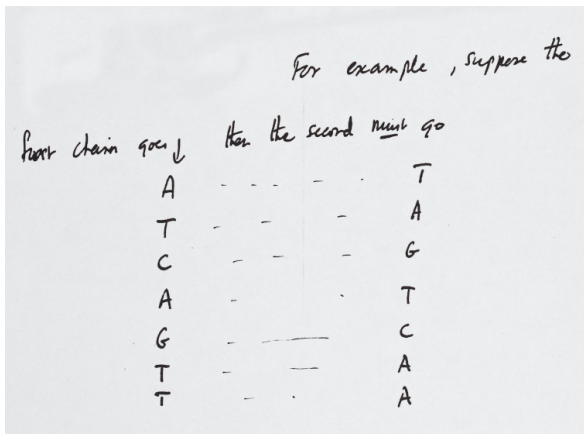 For example, suppose the
first chain goes ↓ then the second must go
A - - - - - T
T - - - A
C - - - G
A - - T
G - — C
T - — A
T - - A